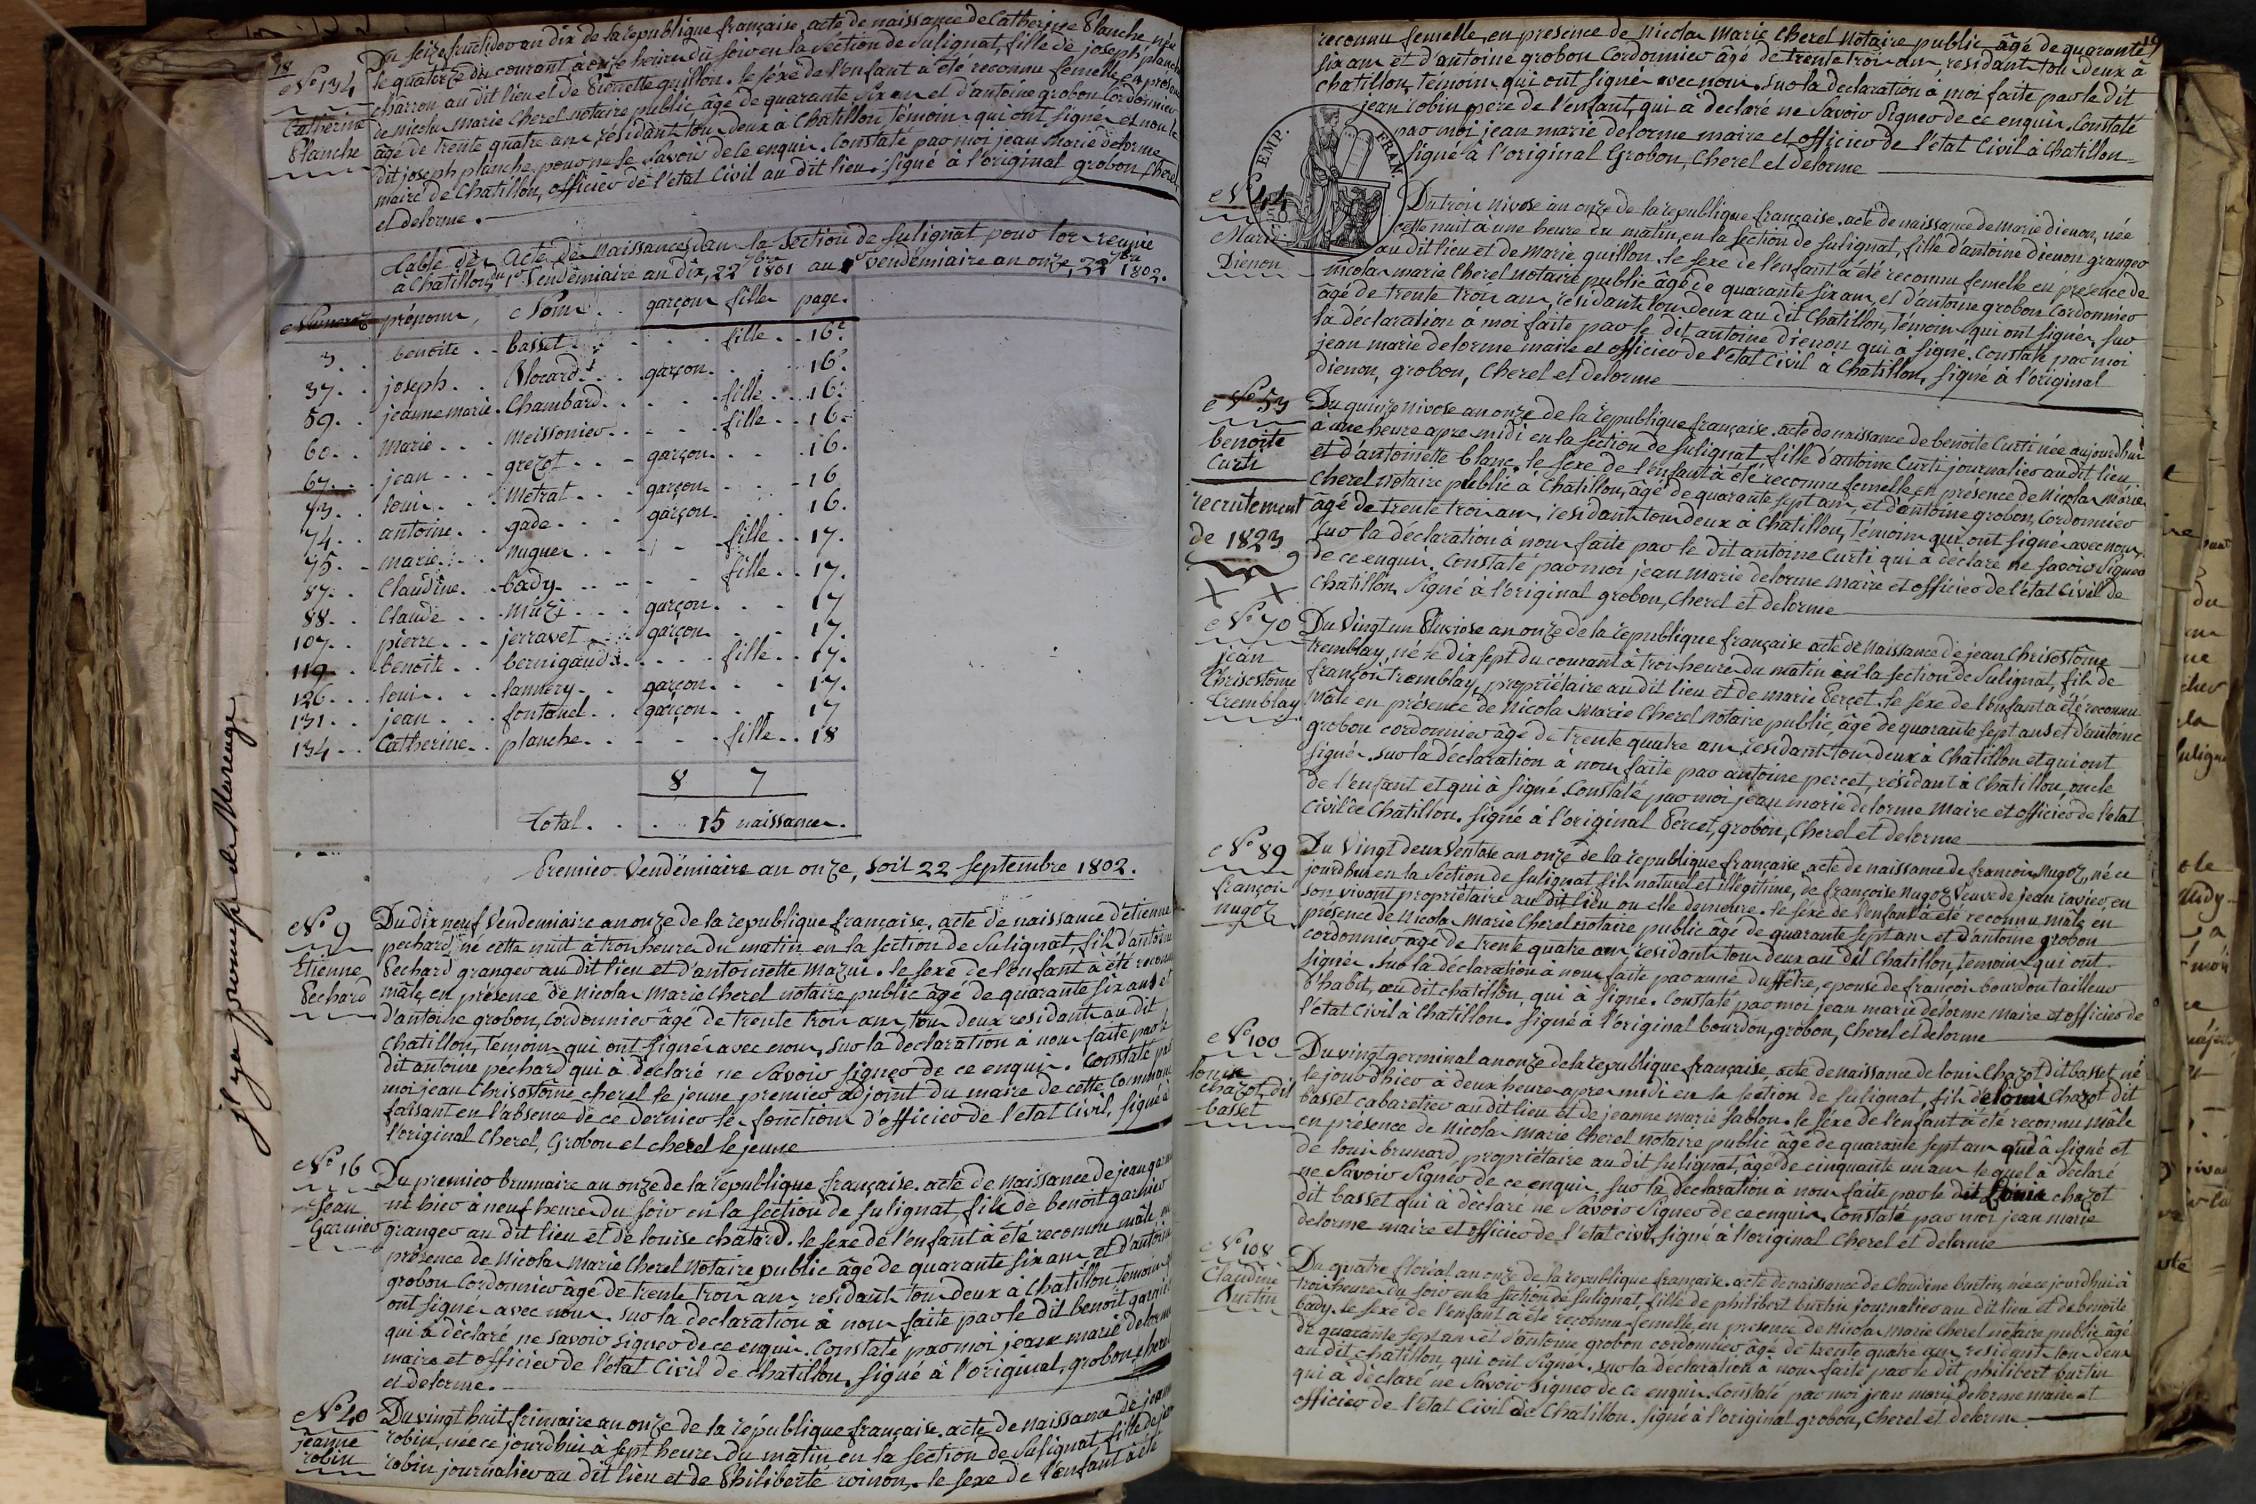 18
Du seize fructidor an dix de la republique française, acte de naissance de Catherine Planche née
le quatorze du courant à onze heures du soir en la section de Sulignat, fille de joseph planche
charron au dit lieu et de Pierrette guillon. le séxe de l'enfant a été reconnu femelle, en présence
de nicolas Marie Cherel notaire public âgé de quarante six ans et d'antoine grobon Cordonnier
âgé de trente quatre ans, résidants tous deux à Chatillon témoins qui ont signés et non le
dit joseph planche pour ne le savoir de ce enquis. Constaté par moi jean marie delorme
maire de Chatillon, officier de l'etat Civil au dit lieu. signé à l'original grobon, Cherel
et delorme.
N° 134
Catherine
Planche
table des Actes de Naissances dans la Section de Sulignat pour lors reunie
a Chatillon, du 1er Vendémiaire an dix, 22 7bre 1801 au 1er Vendémiaire an onze, 22 7bre 1802.
Numeros prénoms, Noms . . garçons filles pages.
3. . benoite . . basset . . . fille . . 16.
37. . joseph. . Blocard . . garçon. . . 16.
59. . jeanne marie . Chambard. . . fille . . 16.
60. . marie . . meissonier. . . fille . . 16.
67. . jean . . grezot . . garçon. . . 16.
73. . louis . . Metrat . . garçon . . 16
74. . antoine . . gade . . garçon. . . 16.
75. . marie . . nuguer . . fille . . 17.
87. . Claudine . . bady . . fille . . 17.
88. . Claude . . Muzi . . garçon. . . 17
107. . pierre . . jerravet . . garçon. . . 17.
119 . benoite . . bernigaud . . fille . . 17.
126. . . louis . . lamery . . garçon. . . 17.
131 . . jean . . fontanel . . garçon. . . 17
134 . . Catherine. . planche. . . fille . . 18
8 7
total. . . . 15 naissances.
Premier Vendémiaire an onze, soit 22 septembre 1802.
N° 9
Etienne
Pechard
Du dix neuf Vendemiaire an onze de la republique française. acte de naissance d'étienne
pechard, né cette nuit à trois heures du matin en la section de Sulignat, fils d'antoine
Pechard granger au dit lieu et d'antoinette Mazui. le sexe de l'enfant à été reconnu
mâle, en présence de Nicolas Marie Cherel notaire public âgé de quarante six ans et
d'antoine grobon, Cordonnier âgé de trente trois ans, tous deux residants au dit
Chatillon, temoins qui ont signés avec nous, sur la declaration à nous faite par le
dit antoine pechard qui a déclaré ne savoir signer de ce enquis. Constaté par
moi jean Chrisostôme cherel le jeune premier adjoint du maire de cette Commune
faisant en l'absence de ce dernier les fonctions d'officier de l'etat Civil. signé à
l'original Cherel, Grobon et cherel le jeune
N° 16
Jean
Garnier
Du premier brumaire an onze de la republique française. acte de naissance de jean garnier
né hier à neuf heures du soir en la section de Sulignat fils de benoit garnier
granger au dit lieu et de louise chatard. le sexe de l'enfant à été reconnu mâle, en
présence de Nicolas Marie Cherel Notaire public âgé de quarante six ans et d'antoine
grobon Cordonnier âgé de trente trois ans residants tous deux à Chatillon temoins
ont signés avec nous. sur la declaration à nous faite par le dit benoit garnier
qui à déclaré ne savoir signer de ce enquis. Constaté par moi jean marie delorme
maire et officier de l'etat Civil de Chatillon. signé à l'original, grobon, cherel
et delorme.
N° 40
jeanne
robin
Du vingt huit frimaire an onze de la république française. acte de naissance de jeanne
robin, née ce jourd'hui à sept heures du matin en la section de Sulignat fille de jean
robin journalier au dit lieu et de Philiberte roinon. le sexe de l'enfant à été
j'l y a prénoms de Marenge
19
reconnu femelle, en presence de nicolas Marie Cherel Notaire public âgé de quarante
six ans et d'antoine grobon Cordonnier âgé de trente trois ans residants tous deux à
chatillon, temoins qui ont signés avec nous. sur la declaration à moi faite par le dit
jean robin pere de l'enfant, qui à déclaré ne savoir signer de ce enquis. Constaté
par moi jean marie delorme maire et officier de l'etat Civil à Chatillon
signé à l'original Grobon, Cherel et delorme
EMP. FRAN.
N° 44
Marie
Dienon
Du trois nivose an onze de la republique française. acte de naissance de marie dienon, née
cette nuit à une heure du matin, en la section de Sulignat, fille d'antoine dienon granger
au dit lieu et de Marie guillon. le sexe de l'enfant à été reconnu femelle en présence de
nicolas marie Cherel Notaire public âgé de quarante six ans, et d'antoine grobon Cordonnier
âgé de trente trois ans, residants tous deux au dit Chatillon, témoins qui ont signés, sur
la déclaration à moi faite par le dit antoine dienon qui à signé. Constaté par moi
jean marie delorme maire et officier de l'etat Civil à Chatillon, signé à l'original
dienon, grobon, Cherel et delorme
N° 53
benoite
Curti
recrutement
de 1823
Du quinze Nivose an onze de la republique française. acte de naissance de benoite Curti née aujourdhui
à une heure apres midi en la section de Sulignat, fille d'antoine Curti journalier au dit lieu
et d'antoinette blanc. le sexe de l'enfant à été reconnu femelle en présence de Nicolas Marie
Cherel Notaire public à Chatillon, âgé de quarante sept ans, et d'antoine grobon, Cordonnier
âgé de trente trois ans, residants tous deux à Chatillon, Témoins qui ont signé avec nous.
sur la déclaration à nous faite par le dit antoine Curti qui à déclaré ne savoir signer
de ce enquis. Constaté par moi jean Marie delorme maire et officier de l'etat Civil de
Chatillon, signé à l'original grobon, Cherel et delorme
N° 70
jean
Chrisostôme
Tremblay
Du Vingt un Pluviose an onze de la republique française acte de naissance de jean Chrisostôme
tremblay, né le dix sept du courant à trois heures du matin en la section de Sulignat, fils de
françois tremblay, propriétaire au dit lieu et de marie Percet. le sexe de l'enfant à été reconnu
mâle en présence de Nicolas Marie Cherel Notaire public, âgé de quarante sept ans et d'antoine
grobon cordonnier âgé de trente quatre ans residants tous deux à Chatillon et qui ont
signés. sur la déclaration a nous faite par antoine percet, résidant à Chatillon, oncle
de l'enfant et qui à signé. Constaté par moi jean marie delorme Maire et officier de l'etat
Civil de Chatillon. signé à l'original Percet, grobon, Cherel et delorme
N° 89
françois
nugoz
Du Vingt deux Ventose an onze de la republique française, acte de naissance de françois Nugoz, né ce
jourdhui en la section de Sulignat fils naturel et illégitime, de françoise Nugoz Veuve de jean ravier, en
son vivant propriétaire au dit lieu ou elle demeure. le séxe de l'enfant à été reconnu mâle, en
présence de Nicolas Marie Cherel notaire public âgé de quarante sept ans et d'antoine grobon
cordonnier âgé de trente quatre ans residants tous deux au dit Chatillon, temoins qui ont
signés. sur la déclaration a nous faite par anne duffêtre, epouse de françois bourdon tailleur
d'habit, au dit chatillon, qui à signé. Constaté par moi jean marie delorme maire et officier de
l'etat Civil à Chatillon. signé à l'original bourdon, grobon, Cherel et delorme
N° 100
louis
chazot dit
basset
Du vingt germinal an onze de la republique française, acte de naissance de louis Chazot dit basset, né
le jour d'hier à deux heures apres midi en la section de Sulignat, fils de louis Chazot dit
basset cabaretier au dit lieu et de jeanne marie sablon. le séxe de l'enfant à été reconnu mâle
en présence de Nicolas Marie Cherel notaire public âgé de quarante sept ans qui à signé et
de louis brunard, propriétaire au dit sulignat, âgé de cinquante un ans lequel a déclaré
ne savoir signer de ce enquis. sur la déclaration à nous faite par le dit Louis chazot
dit basset qui à déclaré ne savoir signer de ce enquis. Constaté par moi jean marie
delorme maire et officier de l'etat civil, signé à l'original Cherel et delorme
N° 108
Claudine
Burtin
Du quatre floréal an onze de la republique française. acte de naissance de Claudine burtin, née ce jourdhui à
trois heures du soir en la section de Sulignat, fille de philibert burtin journalier au dit lieu et de benoite
bady. le sexe de l'enfant à été reconnu femelle, en presence de Nicolas Marie Cherel notaire public âgé
de quarante sept ans et d'antoine grobon cordonnier âgé de trente quatre ans residants tous deux
au dit chatillon, qui ont signés. sur la déclaration a nous faite par le dit philibert burtin
qui à déclaré ne savoir signer de ce enquis. Constaté par moi jean marie delorme maire et
officier de l'etat Civil de Chatillon. signé à l'original grobon, Cherel et delorme.